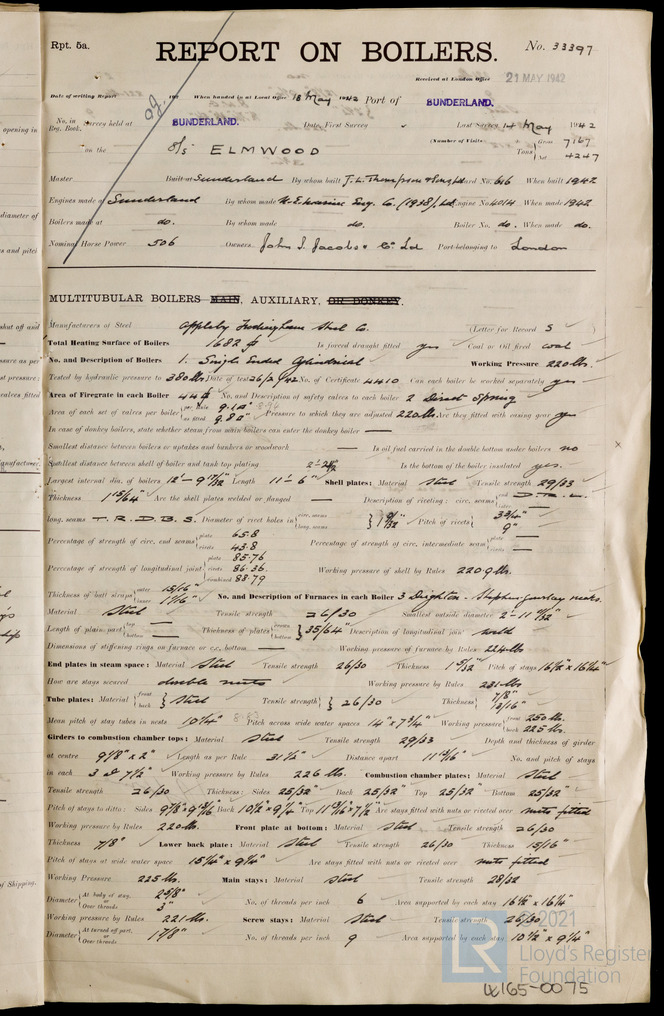 Rpt. 5a.
REPORT ON BOILERS.
No. 33397
Received at London Office 21 MAY 1942
Date of writing Report 194 When handed in at Local Office 18 May 1942 Port of SUNDERLAND.
No. in Reg. Book. Survey held at SUNDERLAND. Date, First Survey Last Survey 14 May 1942
(Number of Visits
on the S/S ELMWOOD Tons Gross 7167 Net 4247
Master Built at Sunderland By whom built J. L. Thompson & Sons Ltd Yard No. 616 When built 1942
Engines made at Sunderland By whom made N. E. Marine Eng. Co. (1938) Ltd Engine No. 4014 When made 1942
Boilers made at do. By whom made do. Boiler No. do. When made do.
Nominal Horse Power 506 Owners John I. Jacobs & Co. Ld Port belonging to London
MULTITUBULAR BOILERS MAIN, AUXILIARY, OR DONKEY.
Manufacturers of Steel Appleby Frodingham Steel Co. (Letter for Record S)
Total Heating Surface of Boilers 1682 Is forced draught fitted yes Coal or Oil fired coal
No. and Description of Boilers 1. Single Ended Cylindrical Working Pressure 220 lbs.
Tested by hydraulic pressure to 380 lbs Date of test 26/2/42 No. of Certificate 4410 Can each boiler be worked separately yes
Area of Firegrate in each Boiler 44 No. and Description of safety valves to each boiler 2 Direct Spring
Area of each set of valves per boiler per Rule 9.10 as fitted 9.82 Pressure to which they are adjusted 220 lbs Are they fitted with easing gear yes
In case of donkey boilers, state whether steam from main boilers can enter the donkey boiler —
Smallest distance between boilers or uptakes and bunkers or woodwork Is oil fuel carried in the double bottom under boilers no
Smallest distance between shell of boiler and tank top plating Is the bottom of the boiler insulated yes.
Largest internal dia. of boilers 12'-9 17/32" Length 11'-6" Shell plates: Material Steel Tensile strength 29/33
Thickness 1 15/64" Are the shell plates welded or flanged — Description of riveting: circ. seams end D.R.L.
long. seams T.R.D.B.S. Diameter of rivet holes in circ. seams long. seams 1 9/32" Pitch of rivets 3 3/4" 9"
Percentage of strength of circ. end seams plate 65.8 rivets 43.8 Percentage of strength of circ. intermediate seam plate rivets —
Percentage of strength of longitudinal joint plate 85.76 rivets 86.36 combined 88.79 Working pressure of shell by Rules 220.9 lbs.
Thickness of butt straps outer 15/16" inner 1 1/16" No. and Description of Furnaces in each Boiler 3 Deighton - Stephen Gourlay necks.
Material Steel Tensile strength 26/30 Smallest outside diameter 2'-11 11/32"
Length of plain part top bottom — Thickness of plates crown bottom 35/64" Description of longitudinal joint weld
Dimensions of stiffening rings on furnace or c.c. bottom — Working pressure of furnace by Rules 224 lbs
End plates in steam space: Material Steel Tensile strength 26/30 Thickness 1 5/32" Pitch of stays 16 1/2" x 16 1/4"
How are stays secured double nuts Working pressure by Rules 231 lbs
Tube plates: Material front back Steel Tensile strength 26/30 Thickness 7/8" 13/16"
Mean pitch of stay tubes in nests 10 1/4" Pitch across wide water spaces 14" x 7 3/4" Working pressure front 250 lbs. back 225 lbs.
Girders to combustion chamber tops: Material Steel Tensile strength 29/33 Depth and thickness of girder
at centre 9 1/8" x 2" Length as per Rule 31 1/2" Distance apart 11 13/16" No. and pitch of stays
in each 3 @ 7 1/2" Working pressure by Rules 226 lbs. Combustion chamber plates: Material Steel
Tensile strength 26/30 Thickness: Sides 25/32" Back 25/32" Top 25/32" Bottom 25/32"
Pitch of stays to ditto: Sides Back 10 1/2" x 9 1/4" Top 11 13/16" x 7 1/2" Are stays fitted with nuts or riveted over nuts fitted
Working pressure by Rules 220 lbs. Front plate at bottom: Material Steel Tensile strength 26/30
Thickness 7/8" Lower back plate: Material Steel Tensile strength 26/30 Thickness 15/16"
Pitch of stays at wide water space 15 1/4" x 9 1/4" Are stays fitted with nuts or riveted over nuts fitted
Working Pressure 225 lbs. Main stays: Material Steel Tensile strength 28/32
Diameter At body of stay, or Over threads 2 5/8" 3" No. of threads per inch 6 Area supported by each stay 16 1/2" x 16 1/4"
Working pressure by Rules 221 lbs. Screw stays: Material Steel Tensile strength 26/30
Diameter At turned off part, or Over threads 1 7/8" No. of threads per inch 9 Area supported by each stay 10 1/2" x 9 1/4"
© 2021
LR Lloyd's Register
Foundation
W165-0075